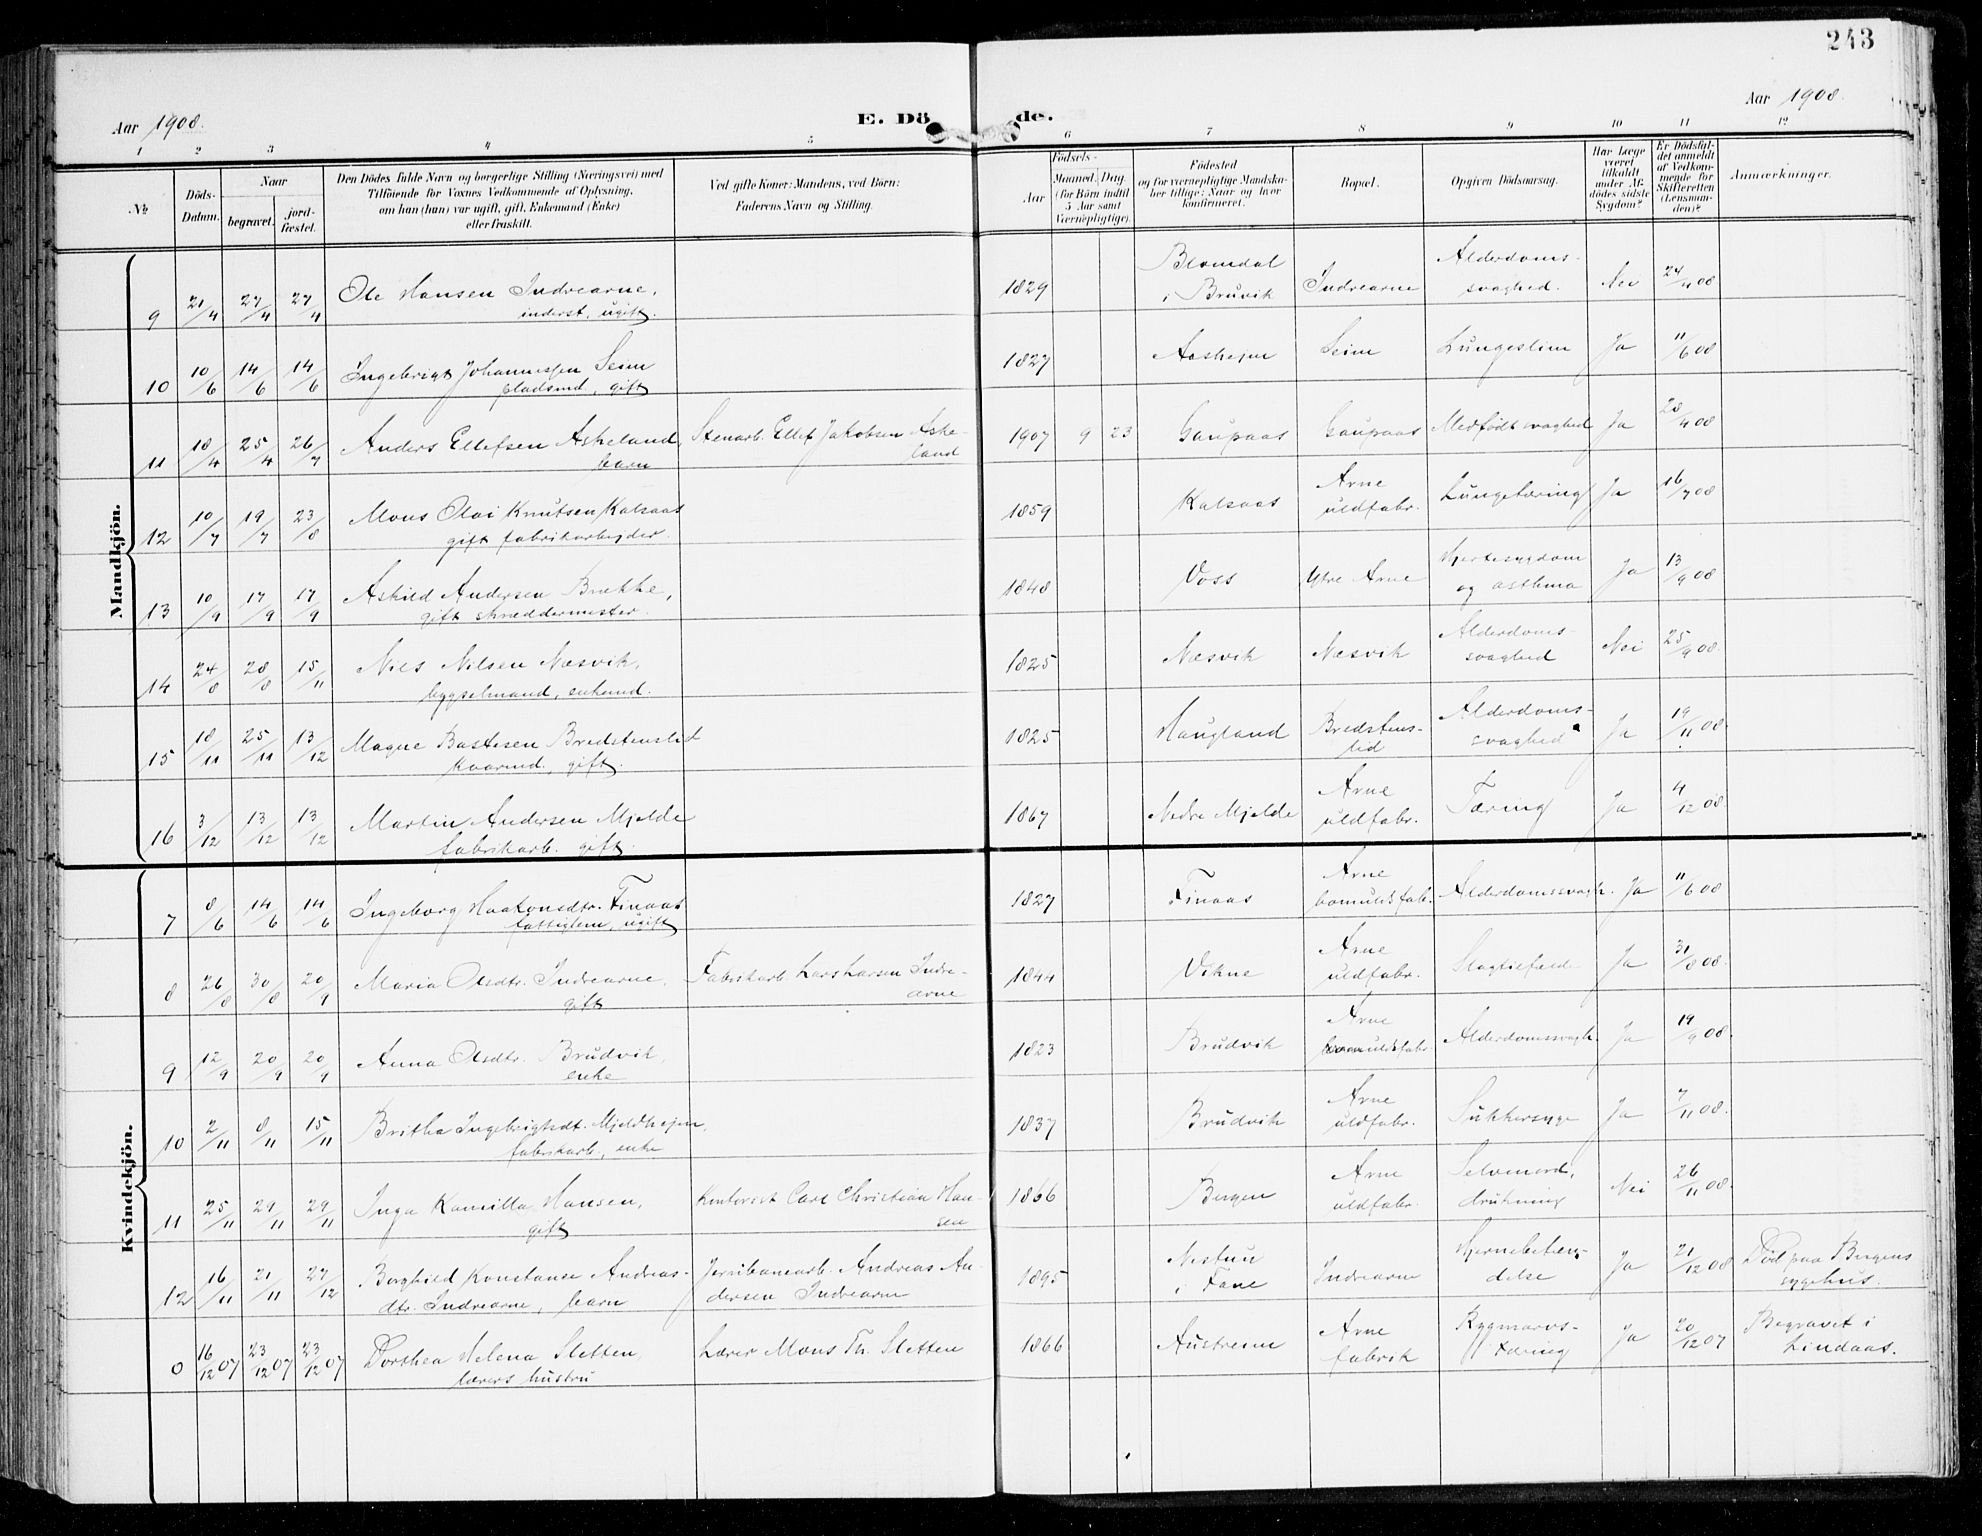 243
Aar 1908.
E. Dö de.
Aar 1908.
1 2 3 4 5 6 7 8 9 10 11 12
№
Döds-Datum.
Naar
begravet.
jord-fæstet.
Den Dödes fulde Navn og borgerlige Stilling (Næringsvei) med
Tilföiende for Voxnes Vedkommende af Oplysning,
om han (hun) var ugift, gift, Enkemand (Enke)
eller fraskilt.
Ved gifte Koner: Mandens, ved Börn:
Faderens Navn og Stilling.
Födsels-
Aar
Maaned. Dag.
(for Börn indtil
5 Aar samt
Værnepligtige).
Födested
og for værnepligtige Mandska-
ber tillige: Naar og hvor
konfirmeret.
Bopæl.
Opgiven Dödsaarsag.
Har Læge
været
tilkaldt
under Af-
dödes sidste
Sygdom?
Er Dödsfal-
det anmeldt
af Vedkom-
mende for
Skifteretten
(Lensman-
den)?
Anmærkninger.
Mandkjön.
9 21/4 27/4 27/4 Ole Hansen Indrearne, 1829 Blomdal i Bruvik Indrearne Alderdoms-svaghed. Nei 24/4 08
inderst, ugift.
10 10/6 14/6 14/6 Ingebrigt Johannessen Seim 1827 Aasheim Seim Lungeslim Ja 11/6 08
pladsmd, gift
11 18/4 25/4 26/7 Anders Ellefsen Askeland, Stenarb. Ellef Jakobsen Aske-land 1907 9 23 Gaupaas Gaupaas Medfödt svaghed Ja 28/4 08
barn
12 10/7 19/7 23/8 Mons Olai Knutsen Kalsaas 1859 Kalsaas Arne uldfabr. Lungetæring Ja 16/7 08
gift fabrikarbejder.
13 10/9 17/9 17/9 Askild Andersen Brække, 1848 Voss Ytre Arne Hjertesygdom og asthma Ja 13/9 08
gift skræddermester.
14 24/8 28/8 15/11 Nils Nilsen Næsvik, 1825 Næsvik Næsvik Alderdoms-svaghed Nei 25/9 08.
bygselmand, enkemd.
15 18/11 25/11 13/12 Magne Bastesen Bredstenslid 1825 Haugland Bredstens-lid Alderdoms-svaghed Ja 19/11 08
kaarmd, gift.
16 3/12 13/12 13/12 Martin Andersen Mjelde 1867 Nedre Mjelde Arne uldfabr. Tæring Ja 4/12 08.
fabrikarb. gift.
Kvindekjön.
7 8/6 14/6 14/6 Ingeborg Haakonsdtr. Finaas 1827 Finaas Arne bomuldsfab. Alderdomssvagh. Ja 11/6 08
fattiglem, ugift
8 26/8 30/8 20/9 Maria Olsdtr. Indrearne, Fabrikarb. Lars Larsen Indre-arne 1844 Vikne Arne uldfabr. Slagtilfeld Ja 31/8 08.
gift
9 12/9 20/9 20/9 Anna Olsdtr. Brudvik, 1823 Brudvik Arne bomuldsfabr. Alderdomssvagh. Ja 19/9 08.
enke
10 2/11 8/11 15/11 Britha Ingebrigtsdt. Mjeldhejen, 1837 Brudvik Arne uldfabr. Sukkersyge Ja 7/11 08.
fabrikarb, enke
11 25/11 29/11 29/11 Inga Kamilla Hansen, Kontorist Carl Christian Han-sen 1866 Bergen Arne uldfabr. Selvmord, drukning Nei 26/11 08.
gift
12 16/11 21/11 27/12 Borghild Konstanse Andreas- Jernbanearb. Andreas An-dersen Indrearne 1895 Nestun i Fane Indrearne Hjernebetæn-delse Ja 21/12 08 Död paa Bergens sygehus.
dtr. Indrearne, barn
0 16/12 07 23/12 07 23/12 07 Dorthea Helena Sletten, Lærer Mons Th. Sletten 1866 Austreim Arne fabrik Rygmarvs-tæring Ja 20/12 07 Begravet i Lindaas.
lærers hustru